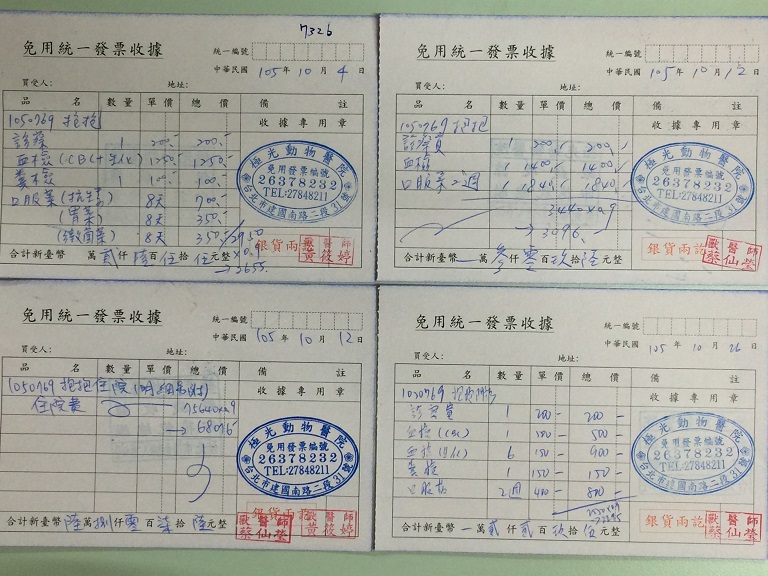 7326
免用統一發票收據
統一編號
中華民國 105 年 10 月 4 日
買受人： 地址：
品 名 數量 單價 總價 備 註
1050769 抱抱 收據專用章
診療 1 200.- 200.-
血檢 (CBC+生化) 1 1250.- 1250.-
糞檢 1 100.- 100.-
口服藥 (抗生素) 8天 700.-
(胃藥) 8天 350.-
(黴菌藥) 8天 350.-
2950
×0.9
→2655.
極光動物醫院
免用發票編號
26378232
TEL:27848211
台北市建國南路二段31號
銀貨兩訖
獸醫師
黃筱婷
合計新臺幣 萬貳仟陸百伍拾伍元整
免用統一發票收據
統一編號
中華民國 105 年 10 月 12 日
買受人： 地址：
品 名 數量 單價 總價 備 註
1050769 抱抱 收據專用章
診療費 1 200.- 200.-
血檢 1 1400.- 1400.-
口服藥2週 1 1840.- 1840.-
3440×0.9
→3096.
極光動物醫院
免用發票編號
26378232
TEL:27848211
台北市建國南路二段31號
銀貨兩訖
獸醫師
蔡仙瑩
合計新臺幣 萬參仟零百玖拾陸元整
免用統一發票收據
統一編號
中華民國 105 年 10 月 12 日
買受人： 地址：
品 名 數量 單價 總價 備 註
1050769 抱抱住院 (明細另附) 收據專用章
住院費 75640×0.9
→68076.
極光動物醫院
免用發票編號
26378232
TEL:27848211
台北市建國南路二段31號
銀貨兩訖
獸醫師
蔡仙瑩
獸醫師
黃筱婷
合計新臺幣 陸萬捌仟零百柒拾陸元整
免用統一發票收據
統一編號
中華民國 105 年 10 月 26 日
買受人： 地址：
品 名 數量 單價 總價 備 註
1050769 抱抱 收據專用章
1 200 - 200 -
血檢 (CBC) 1 500 - 500 -
血檢 (生化) 6 150 - 900 -
糞檢 1 150 - 150 -
口服藥 2週 400 - 800 -
2550×0.9
→2295
極光動物醫院
免用發票編號
26378232
TEL:27848211
台北市建國南路二段31號
銀貨兩訖
獸醫師
蔡仙瑩
合計新臺幣 萬貳仟貳百玖拾伍元整